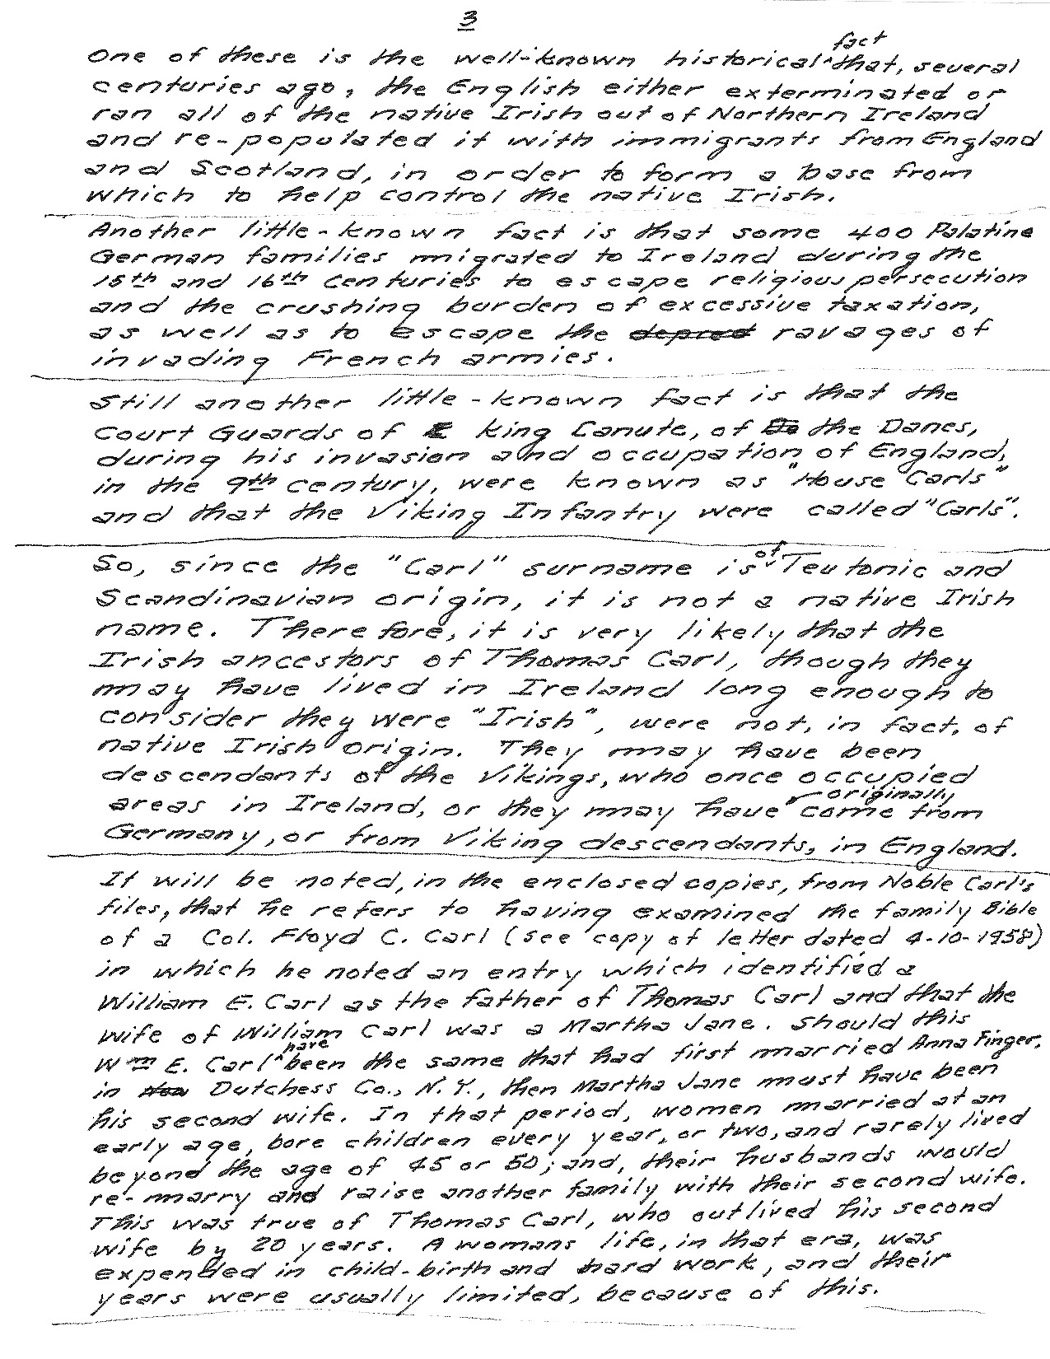 3
One of these is the well-known historical ^fact that, several
centuries ago, the English either exterminated or
ran all of the native Irish out of Northern Ireland
and re-populated it with immigrants from England
and Scotland, in order to form a base from
which to help control the native Irish.
Another little-known fact is that some 400 Palatine
German families migrated to Ireland during the
15th and 16th centuries to escape religious persecution
and the crushing burden of excessive taxation,
as well as to escape the ravages of
invading French armies.
Still another little-known fact is that the
Court Guards of king Canute, of the Danes,
during his invasion and occupation of England,
in the 9th century, were known as "House Carls"
and that the Viking Infantry were called "Carls".
So, since the "Carl" surname is of Teutonic and
Scandinavian origin, it is not a native Irish
name. Therefore, it is very likely that the
Irish ancestors of Thomas Carl, though they
may have lived in Ireland long enough to
consider they were "Irish", were not, in fact, of
native Irish origin. They may have been
descendants of the Vikings, who once occupied
areas in Ireland, or they may have originally come from
Germany, or from Viking descendants, in England.
It will be noted, in the enclosed copies, from Noble Carl's
files, that he refers to having examined the family Bible
of a Col. Floyd C. Carl (see copy of letter dated 4-10-1958)
in which he noted an entry which identified a
William E. Carl as the father of Thomas Carl and that the
wife of William Carl was a Martha Jane. Should this
Wm E. Carl ^have been the same that had first married Anna Finger,
in Dutchess Co., N.Y., then Martha Jane must have been
his second wife. In that period, women married at an
early age, bore children every year, or two, and rarely lived
beyond the age of 45 or 50; and, their husbands would
re-marry and raise another family, with their second wife.
This was true of Thomas Carl, who outlived his second
wife by 20 years. A womans life, in that era, was
expended in child-birth and hard work, and their
years were usually limited, because of this.